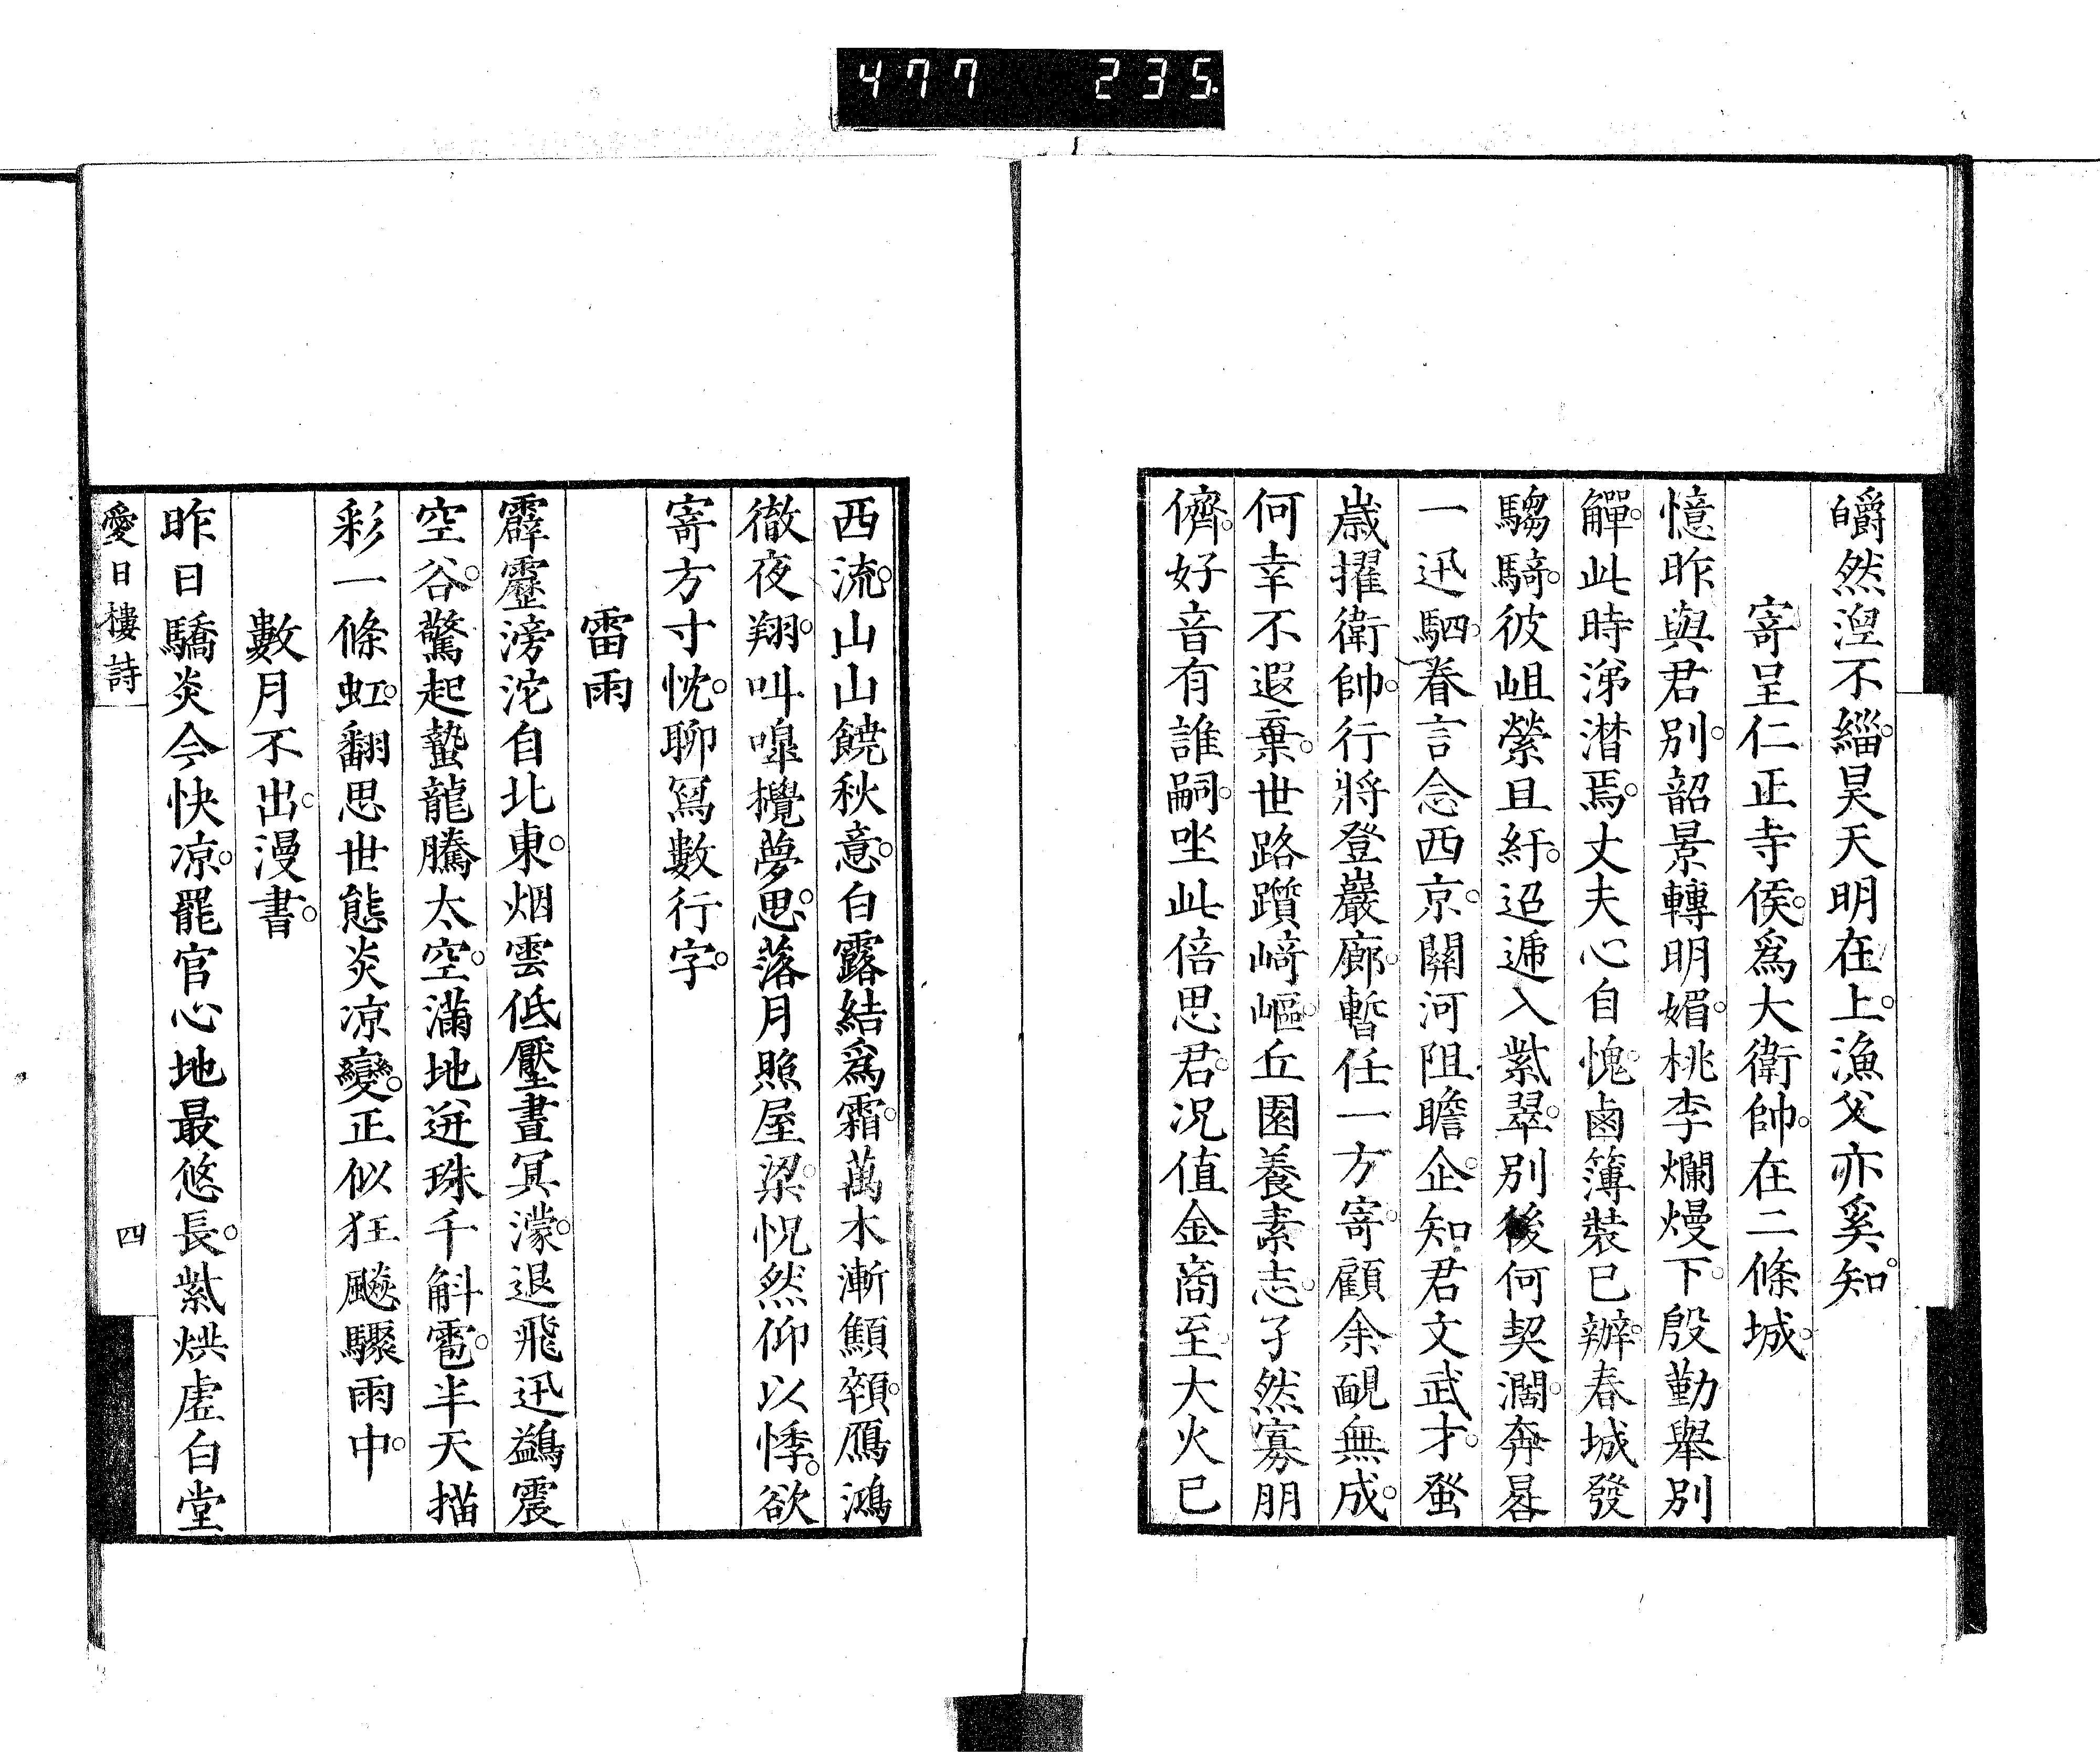 477 235
皭然涅不緇。昊天明在上。漁父亦奚知。
寄呈仁正寺侯。爲大衛帥。在二條城。
憶昨與君別。韶景轉明媚。桃李爛熳下。殷勤舉別
觶。此時涕潜焉。丈夫心自愧。鹵簿裝已辦。春城發
騶騎。彼岨縈且紆。迢遞入紫翠。別後何契濶。奔晷
一迅駟。眷言念西京。關河阻瞻企。知君文武才。蚤
歲擢衛帥。行將登巖廊。暫任一方寄。顧余靦無成。
何幸不遐棄。世路躓崎嶇。丘園養素志。孑然寡朋
儕。好音有誰嗣。坐此倍思君。况值金商至。大火已
西流。山山饒秋意。白露結爲霜。萬木漸顦顇。鴈鴻
徹夜翔。叫嘷攪夢思。落月照屋梁。怳然仰以悸。欲
寄方寸忱。聊寫數行字。
雷雨
霹靂滂沱自北東。烟雲低壓晝冥濛。退飛迅鷁震
空谷。驚起蟄龍騰太空。滿地迸珠千斛雹。半天描
彩一條虹。翻思世態炎凉變。正似狂飈驟雨中。
數月不出。漫書。
昨日驕炎今快凉。罷官心地最悠長。紫烘虛白堂
愛日樓詩 四